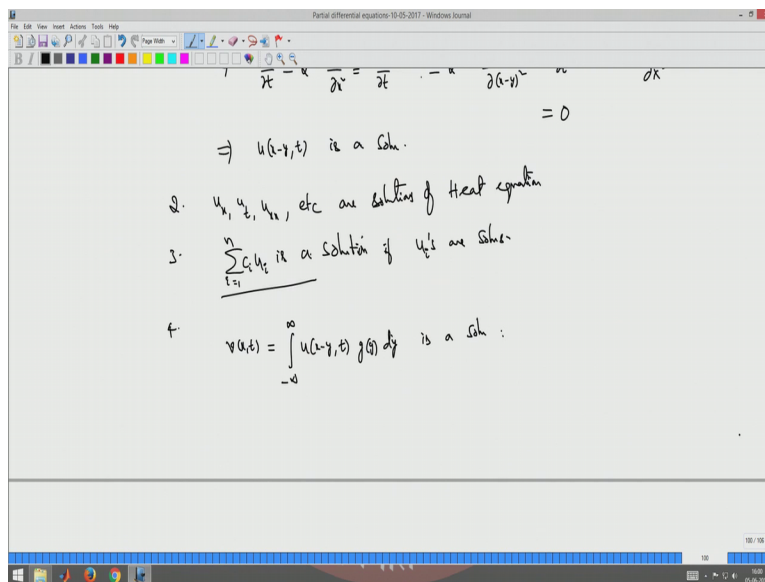 Partial differential equations-10-05-2017 - Windows Journal
File Edit View Insert Actions Tools Help
Page Width
B I
∂t ∂x² = ∂t - α ∂(x-y)² ∂x
= 0
⇒ u(x-y,t) is a Soln.
2. u_x, u_t, u_xx, etc are solutions of Heat equation
3. ∑_{i=1}^{n} c_i u_i is a solution if u_i's are Solns.
4.
v(x,t) = ∫_{-∞}^{∞} u(x-y,t) g(y) dy is a Soln :
100 / 105
100
16:00
05-06-20